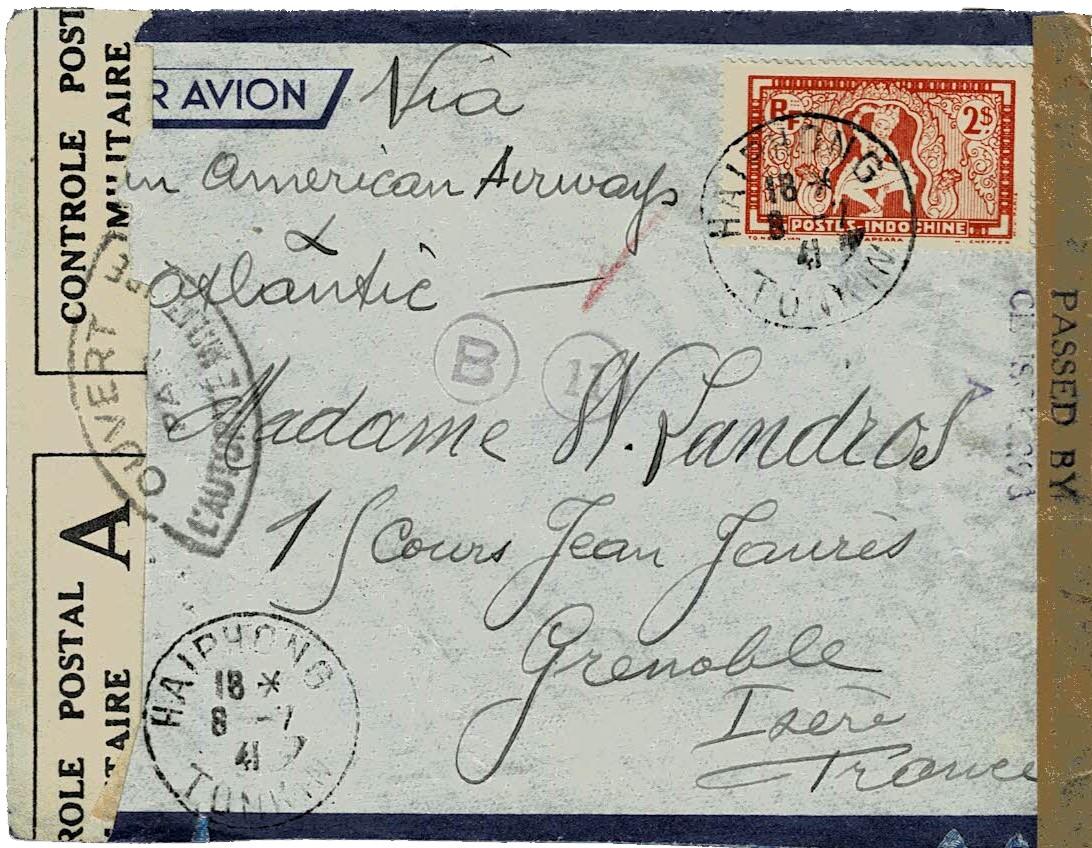 CONTROLE POST
MILITAIRE
R AVION
Via
an American Airways
&
atlantic
RF
2$
POSTES-INDOCHINE
APSARA
HAIPHONG
18 *
8 -7
41
TONKIN
OUVERT
PAR
L'AUTORITÉ MILITAIRE
B
11
Madame W. Landros
15 cours Jean Jaurès
Grenoble
Isère
France
A
ROLE POSTAL
TAIRE
HAIPHONG
18 *
8 -7
41
TONKIN
PASSED BY